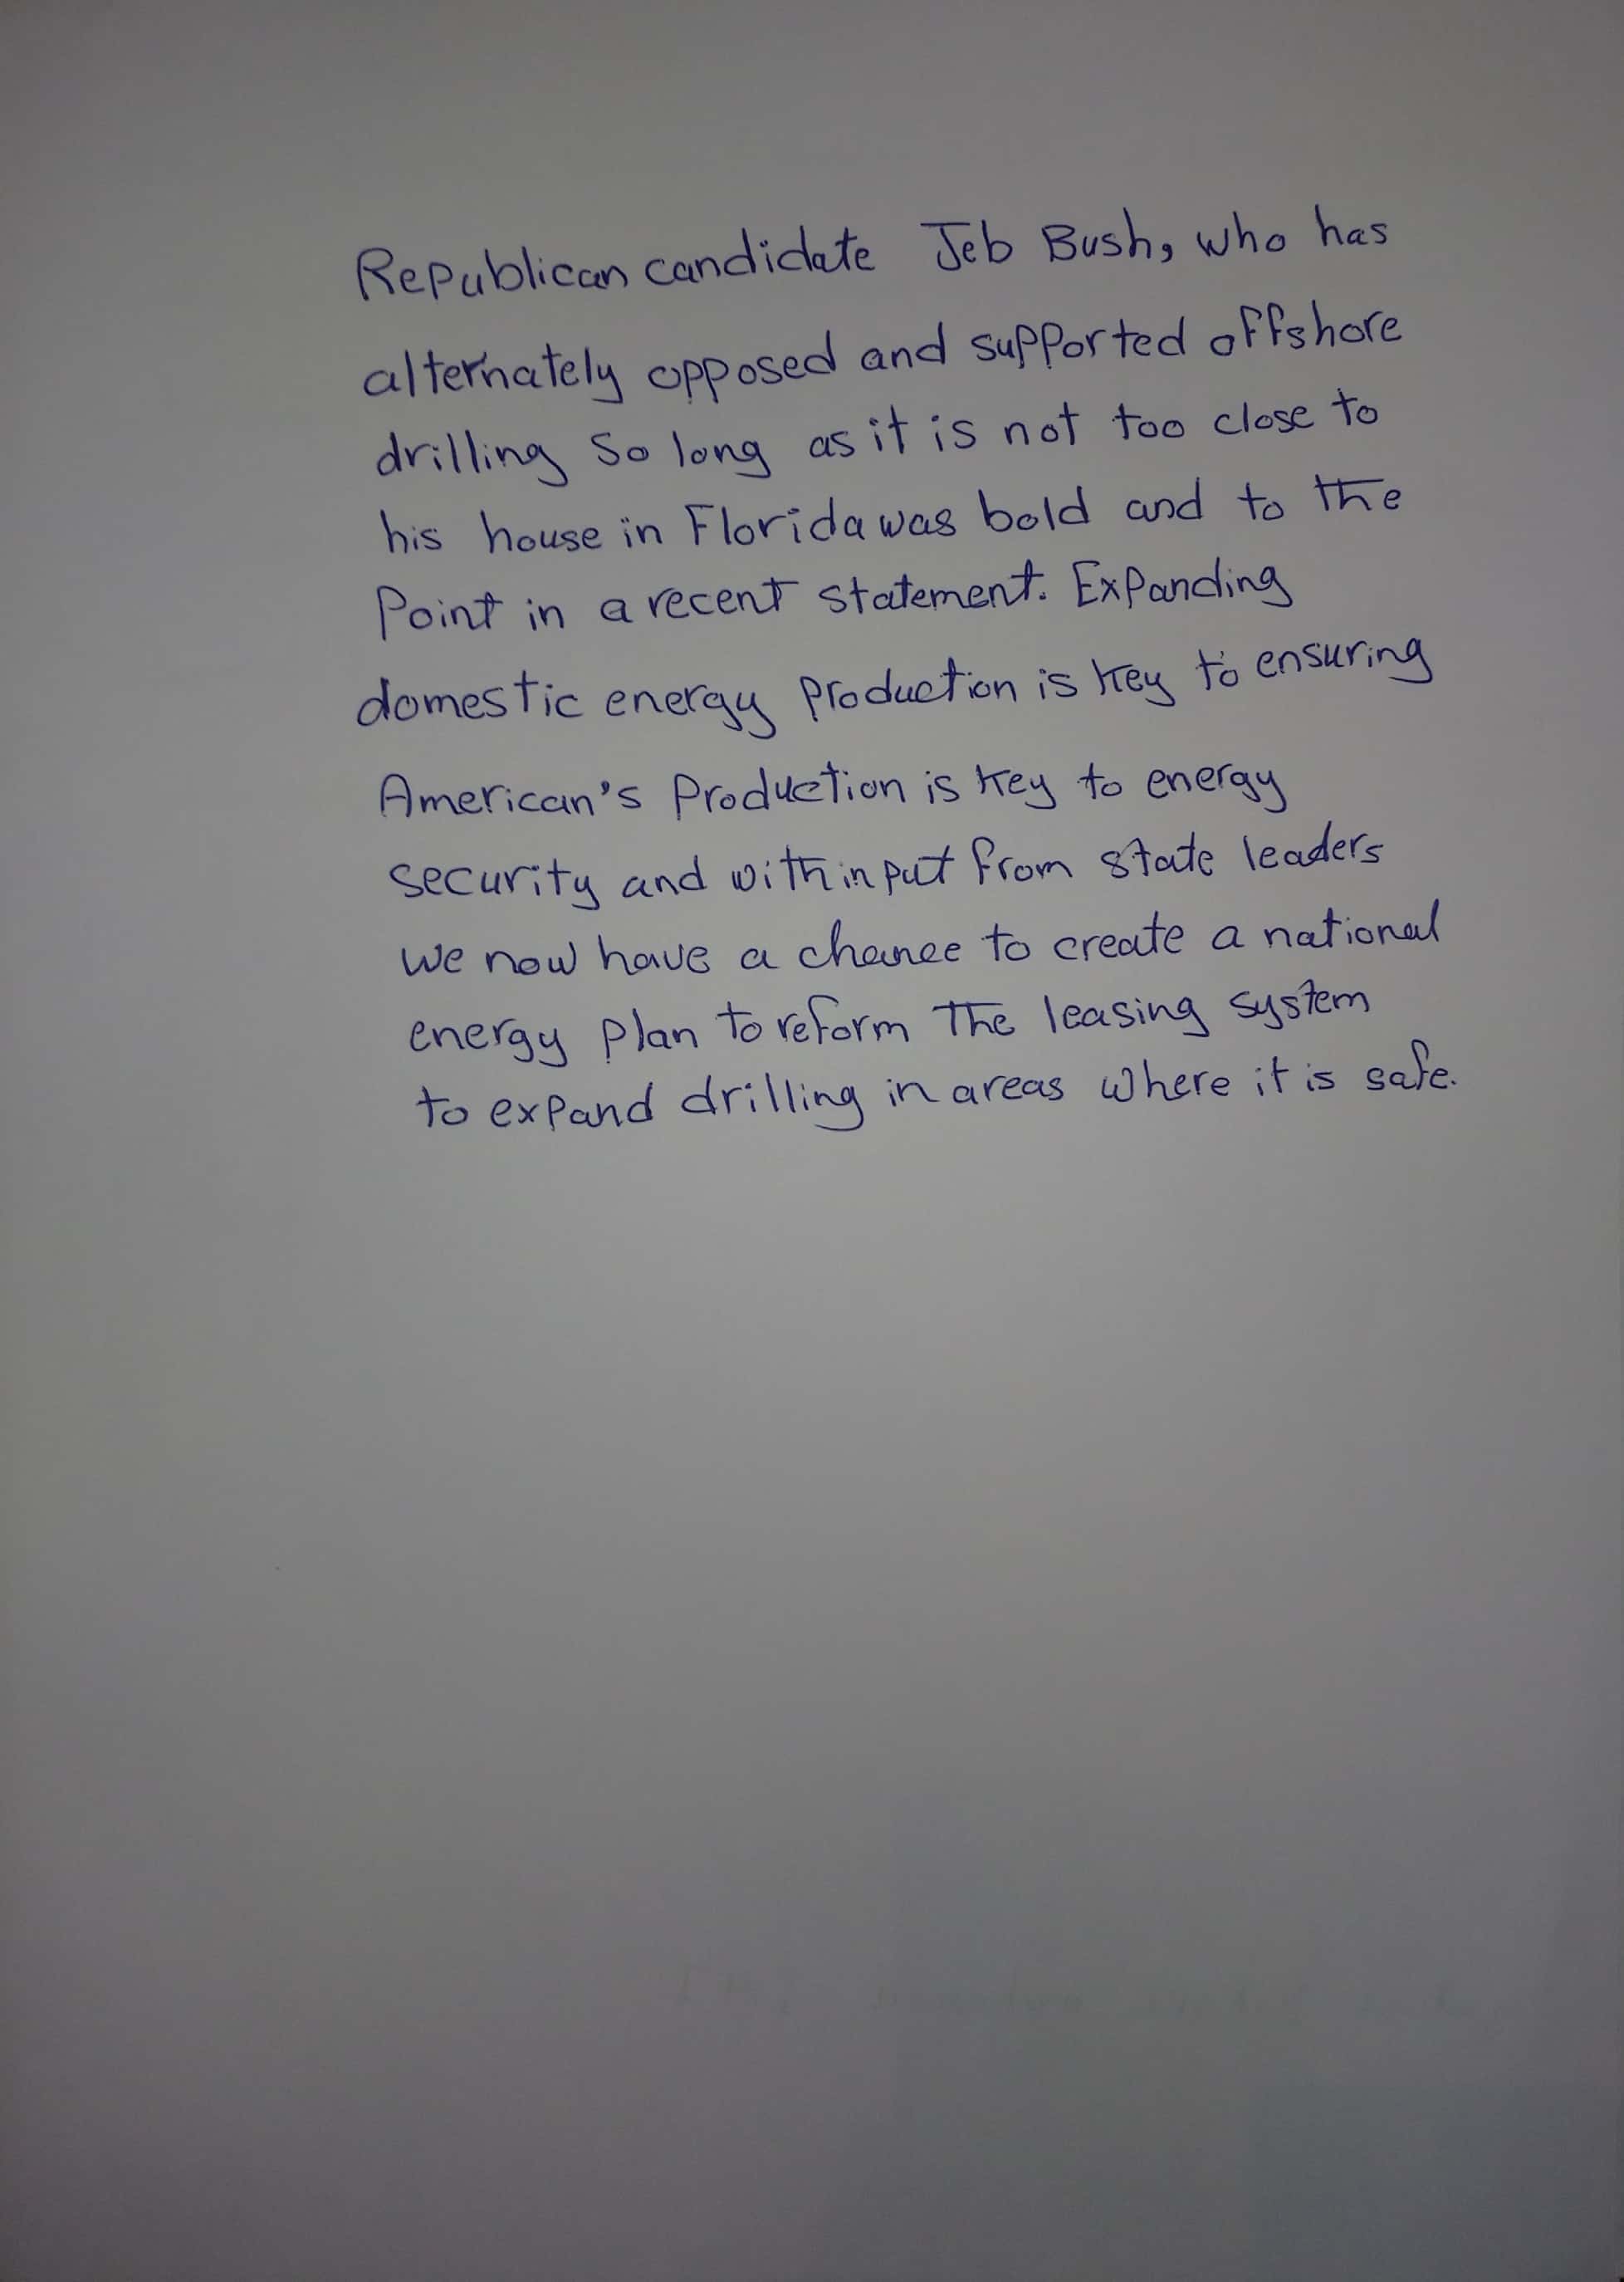 Republican candidate Jeb Bush, who has
alternately opposed and supported offshore
drilling so long as it is not too close to
his house in Florida was bold and to the
Point in a recent statement. Expanding
domestic energy production is key to ensuring
American's Production is key to energy
security and with input from state leaders
we now have a chance to create a national
energy plan to reform the leasing system
to expand drilling in areas where it is safe.